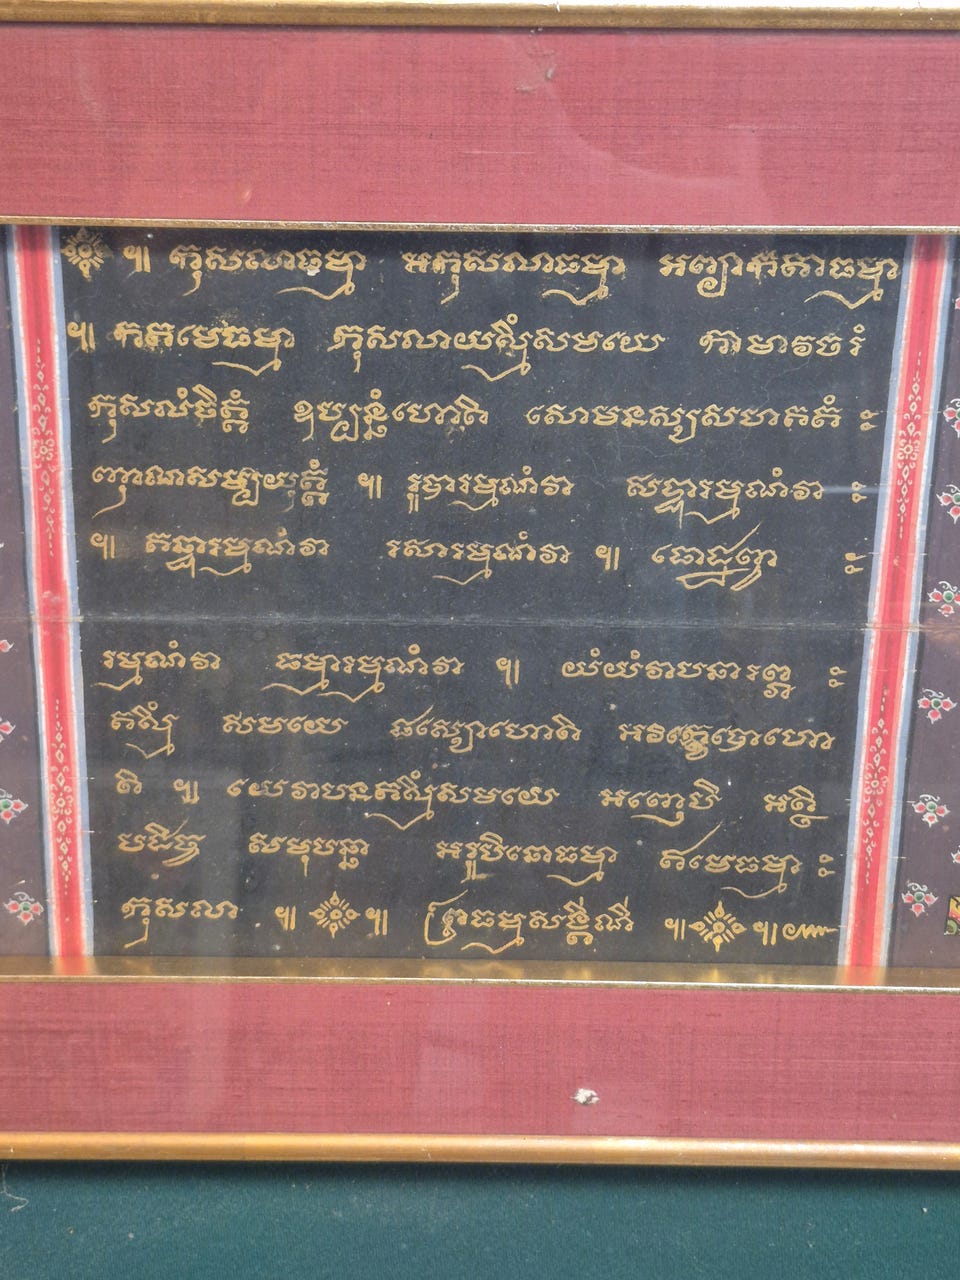 ๏ ៕ កុសលាធម្មា អកុសលាធម្មា អព្យាកតាធម្មា
៕ កតមេធម្មា កុសលាយស្មឹសមយេ កាមាវចរំ
កុសលំចិត្តំ ឧប្បន្នំហោតិ សោមនស្សសហគតំ ៈ
ញាណសម្បយុត្តំ ៕ រូបារម្មណំវា សទ្ទារម្មណំវា ៈ
៕ គន្ធារម្មណំវា រសារម្មណំវា ៕ ផោដ្ឋព្វា ៈ
រម្មណំវា ធម្មារម្មណំវា ៕ យំយំវាបនារព្ភ ៈ
តស្មឹ សមយេ ផស្សោហោតិ អវិក្ខេបោហោ
តិ ៕ យេវាបនតស្មឹសមយេ អញ្ញេបិ អត្ថិ
បដិច្ច សមុប្បន្នា អរូបិនោធម្មា ឥមេធម្មា ៈ
កុសលា ៕ ៕ ព្រះធម្មសង្គិណី ៕ ៕